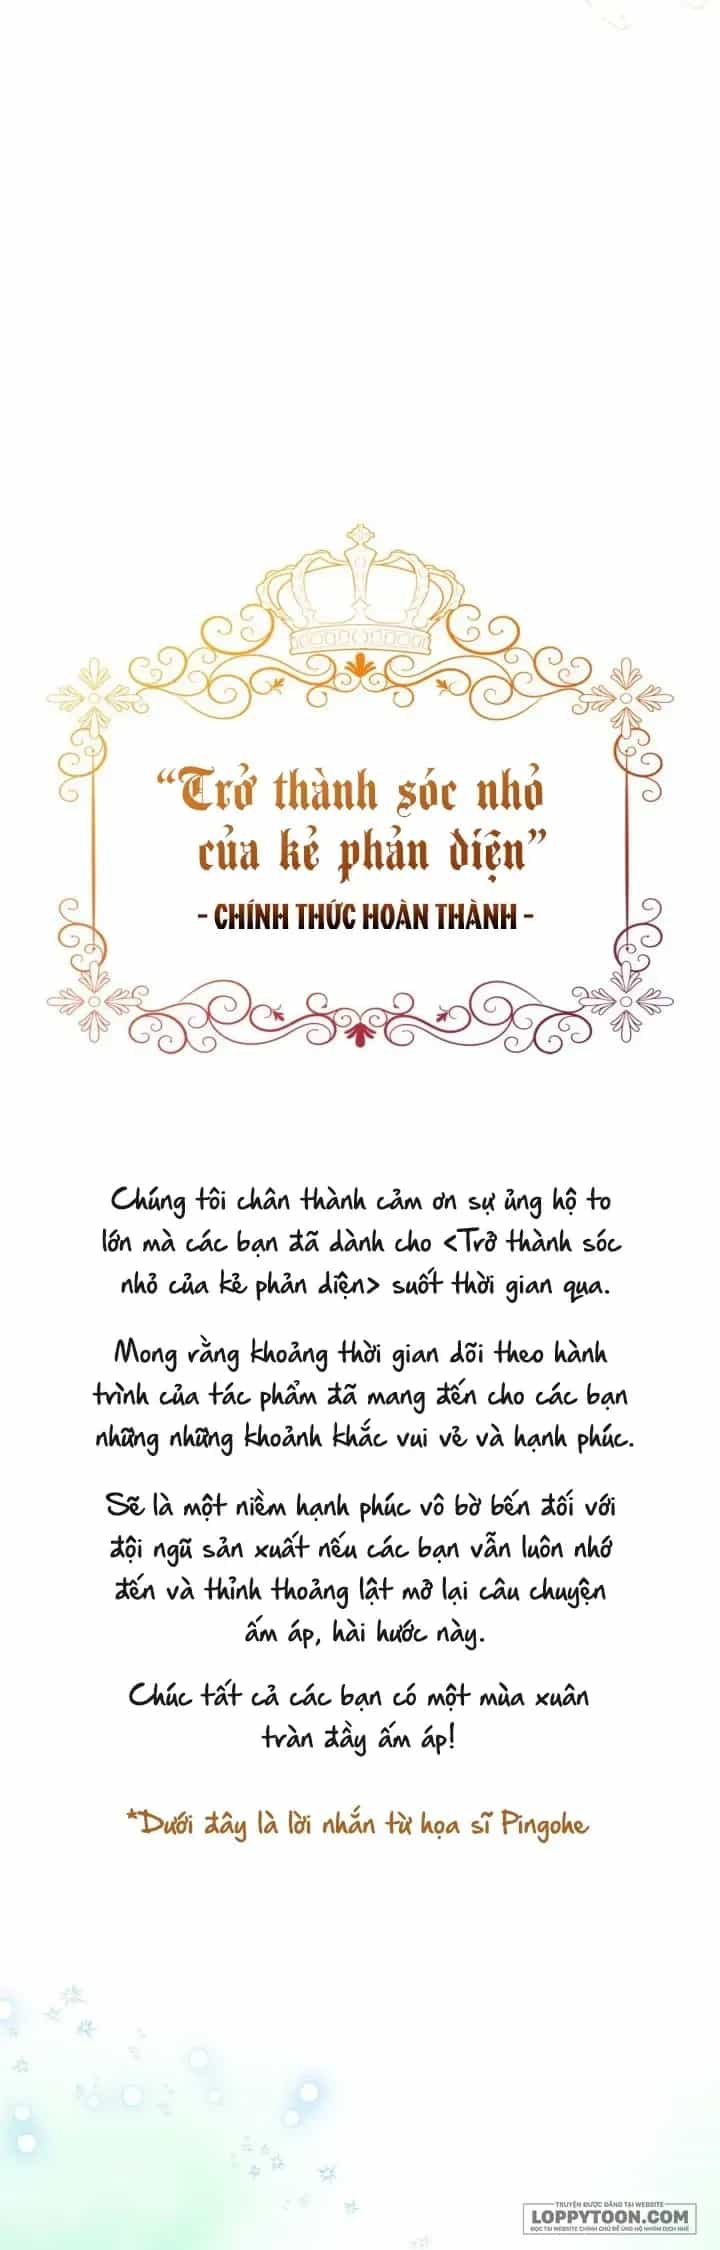 “Trở thành sóc nhỏ
của kẻ phản diện”
- CHÍNH THỨC HOÀN THÀNH -
Chúng tôi chân thành cảm ơn sự ủng hộ to
lớn mà các bạn đã dành cho <Trở thành sóc
nhỏ của kẻ phản diện> suốt thời gian qua.
Mong rằng khoảng thời gian dõi theo hành
trình của tác phẩm đã mang đến cho các bạn
những những khoảnh khắc vui vẻ và hạnh phúc.
Sẽ là một niềm hạnh phúc vô bờ bến đối với
đội ngũ sản xuất nếu các bạn vẫn luôn nhớ
đến và thỉnh thoảng lật mở lại câu chuyện
ấm áp, hài hước này.
Chúc tất cả các bạn có một mùa xuân
tràn đầy ấm áp!
*Dưới đây là lời nhắn từ họa sĩ Pingohe
TRUYỆN ĐƯỢC ĐĂNG TẠI WEBSITE
LOPPYTOON.COM
ĐỌC TẠI WEBSITE CHÍNH CHỦ ĐỂ ỦNG HỘ NHÓM DỊCH NHÉ